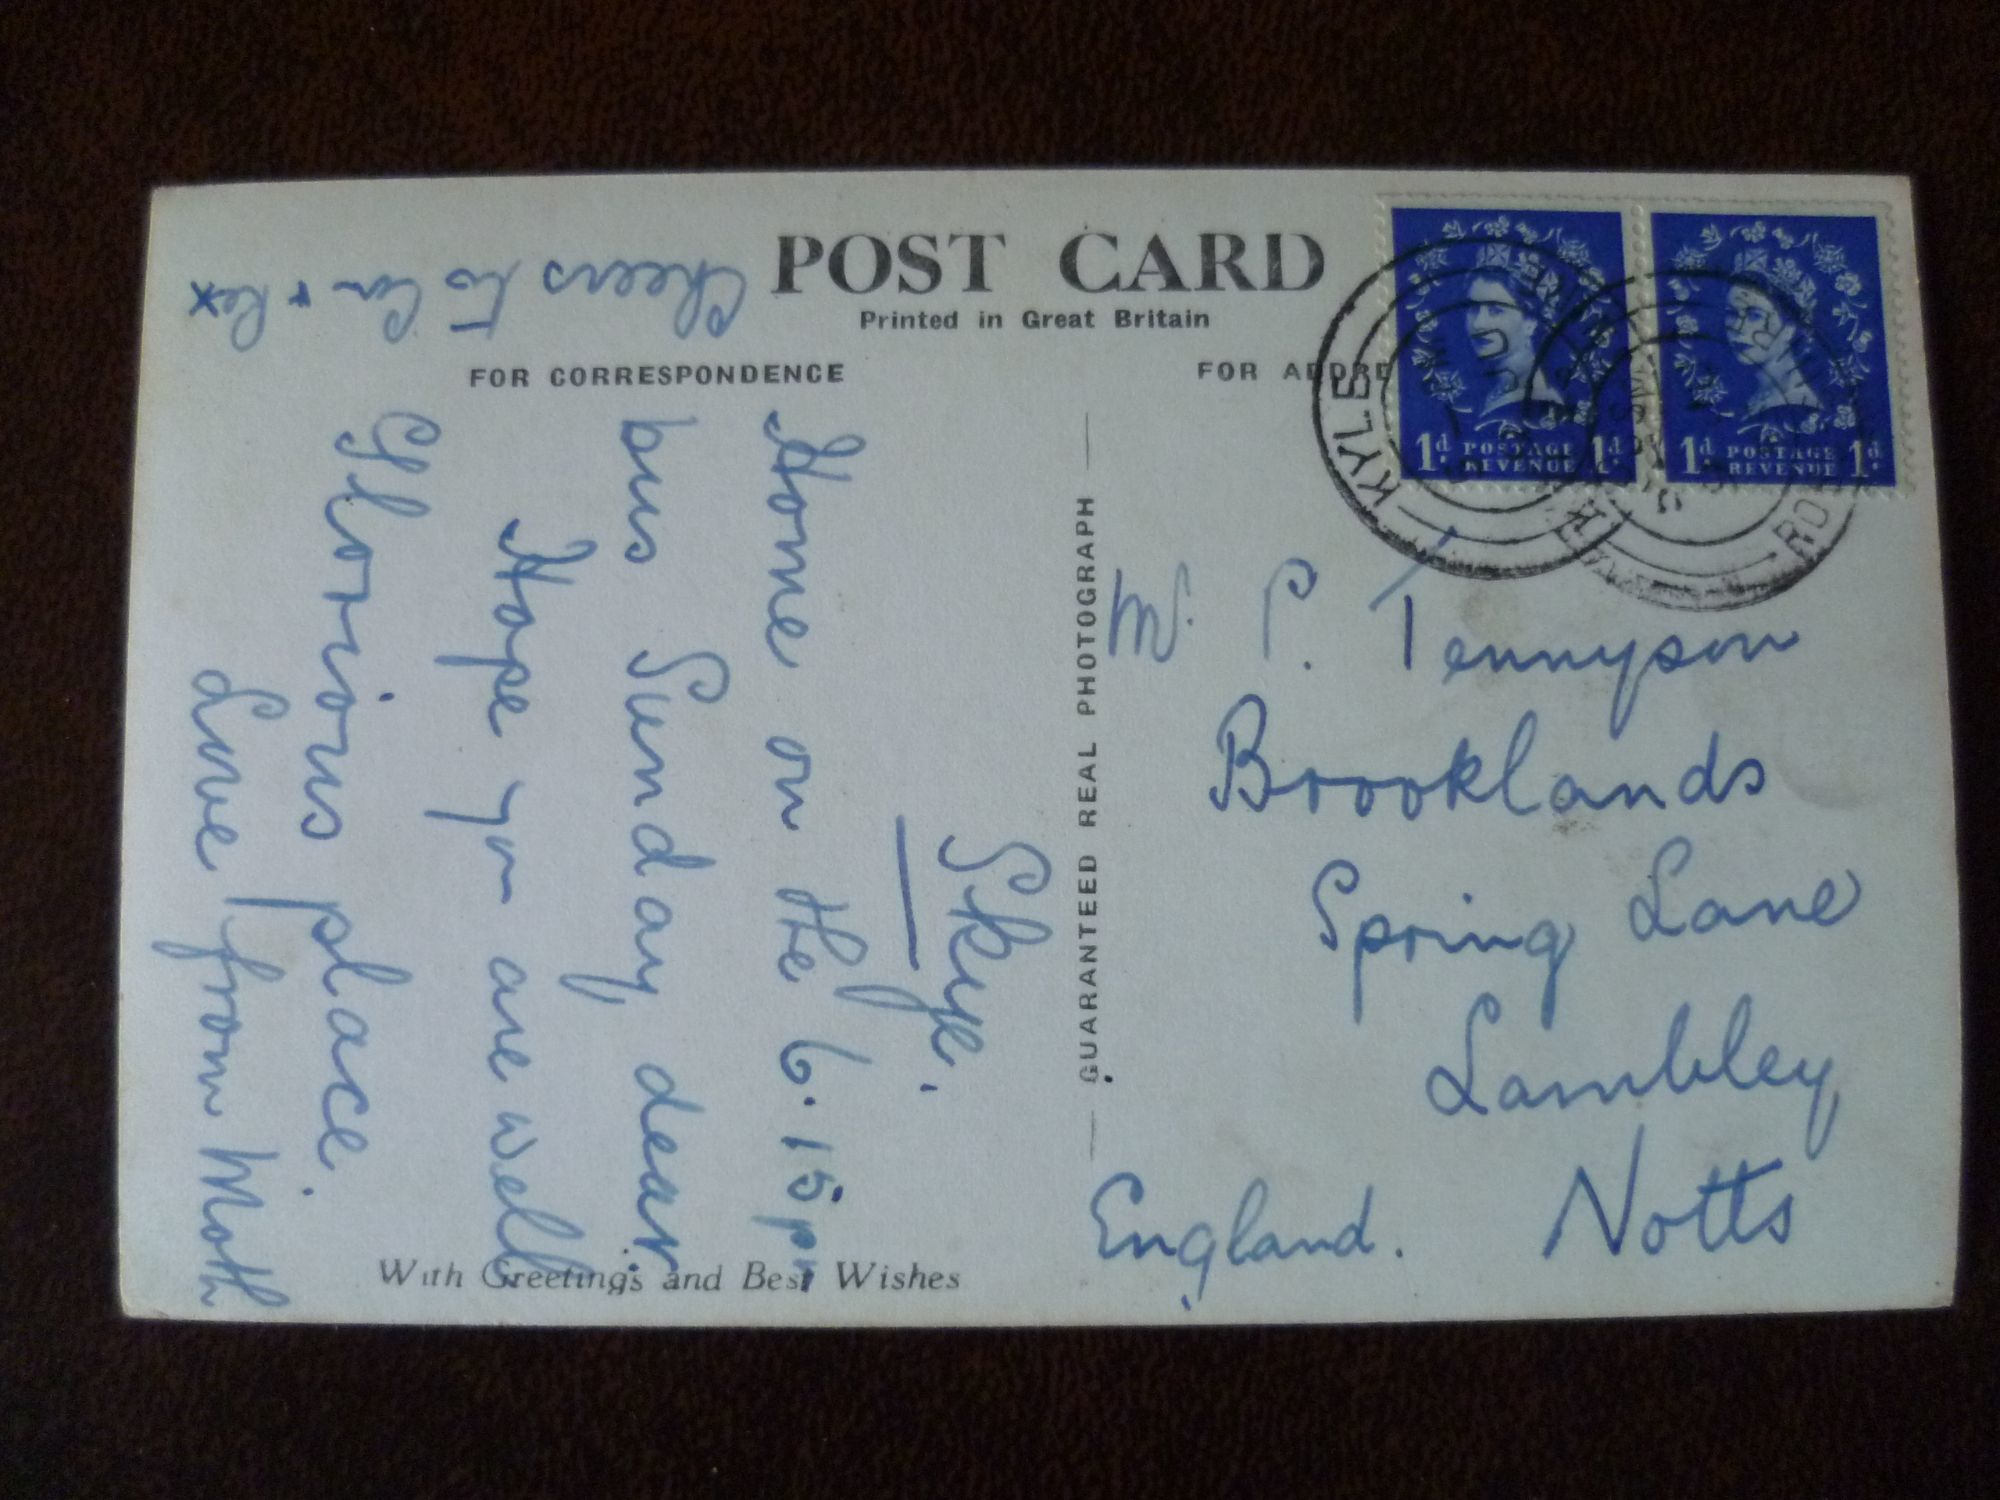 POST CARD
Printed in Great Britain
FOR CORRESPONDENCE
FOR ADDRE
GUARANTEED REAL PHOTOGRAPH
With Greetings and Best Wishes
Skye.
Home on the 6.15 pm
bus Sunday dear
Hope you are well
Glorious place.
Love from Moth
Cheers to + Rex x
M. P. Tennyson
Brooklands
Spring Lane
Lambley
Notts
England.
1d POSTAGE REVENUE 1d
1d POSTAGE REVENUE 1d
KYLE
ROSS